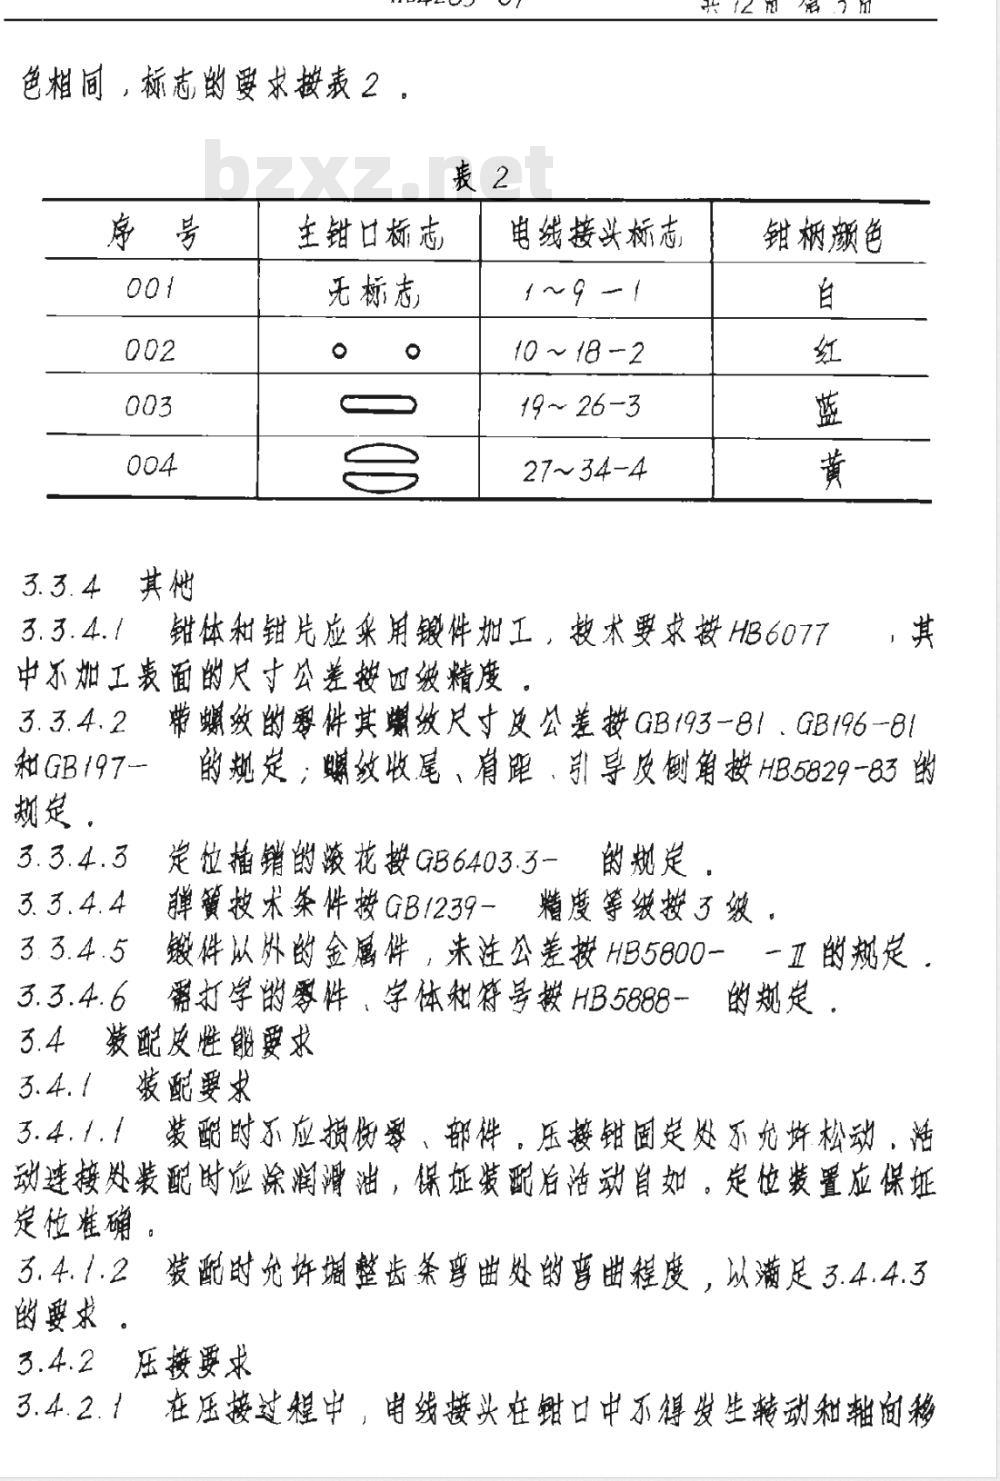 共12页 第3页
色相同，标志的要求按表2．
bzxz.net
表 2
序 号 主钳口标志 电线接头标志 钳柄颜色
001 无标志 1～9－1 白
002 10～18－2 红
003 19～26－3 蓝
004 27～34－4 黄
3.3.4 其他
3.3.4.1 钳体和钳片应采用锻件加工，技术要求按HB6077 ，其
中不加工表面的尺寸公差按四级精度．
3.3.4.2 带螺纹的零件其螺纹尺寸及公差按GB193－81、GB196－81
和GB197－ 的规定；螺纹收尾、肩距、引导及倒角按HB5829－83的
规定．
3.3.4.3 定位插销的滚花按GB6403.3－ 的规定．
3.3.4.4 弹簧技术条件按GB1239－ 精度等级按3级．
3.3.4.5 锻件以外的金属件，未注公差按HB5800－ －Ⅱ的规定．
3.3.4.6 需打字的零件、字体和符号按HB5888－ 的规定．
3.4 装配及性能要求
3.4.1 装配要求
3.4.1.1 装配时不应损伤零、部件。压接钳固定处不允许松动．活
动连接处装配时应涂润滑油，保证装配后活动自如。定位装置应保证
定位准确。
3.4.1.2 装配时允许调整齿条弯曲处的弯曲程度，以满足3.4.4.3
的要求．
3.4.2 压接要求
3.4.2.1 在压接过程中，电线接头在钳口中不得发生转动和轴向移